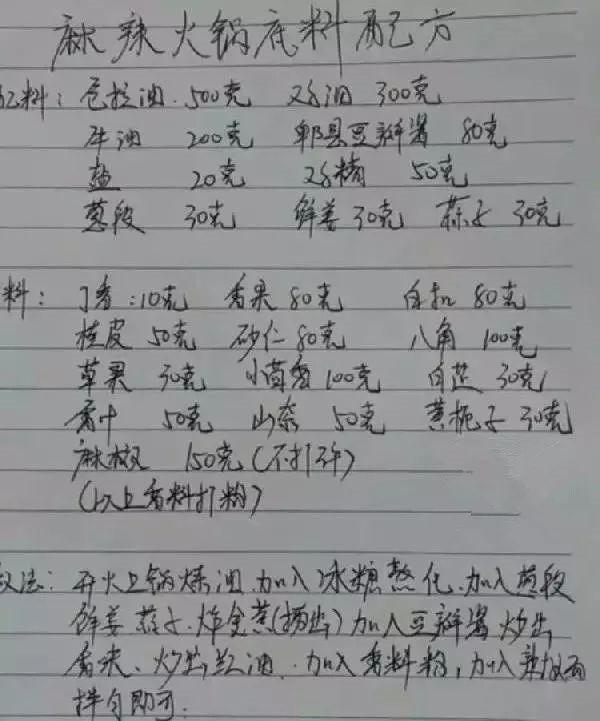 麻辣火锅底料配方
配料: 色拉油 500克 鸡油 300克
牛油 200克 郫县豆瓣酱 80克
盐 20克 鸡精 50克
葱段 30克 鲜姜 30克 蒜子 30克
料: 丁香:10克 香果 80克 白扣 80克
桂皮 50克 砂仁 80克 八角 100克
草果 30克 小茴香 100克 白芷 30克
香叶 50克 山奈 50克 黄栀子 30克
麻椒 150克(不打碎)
(以上香料打粉)
做法: 开火上锅炼油.加入冰糖熬化.加入葱段
鲜姜 蒜子.炸金黄(捞出)加入豆瓣酱 炒出
香味、炒出红油.加入香料粉,加入辣椒面
拌匀即可.